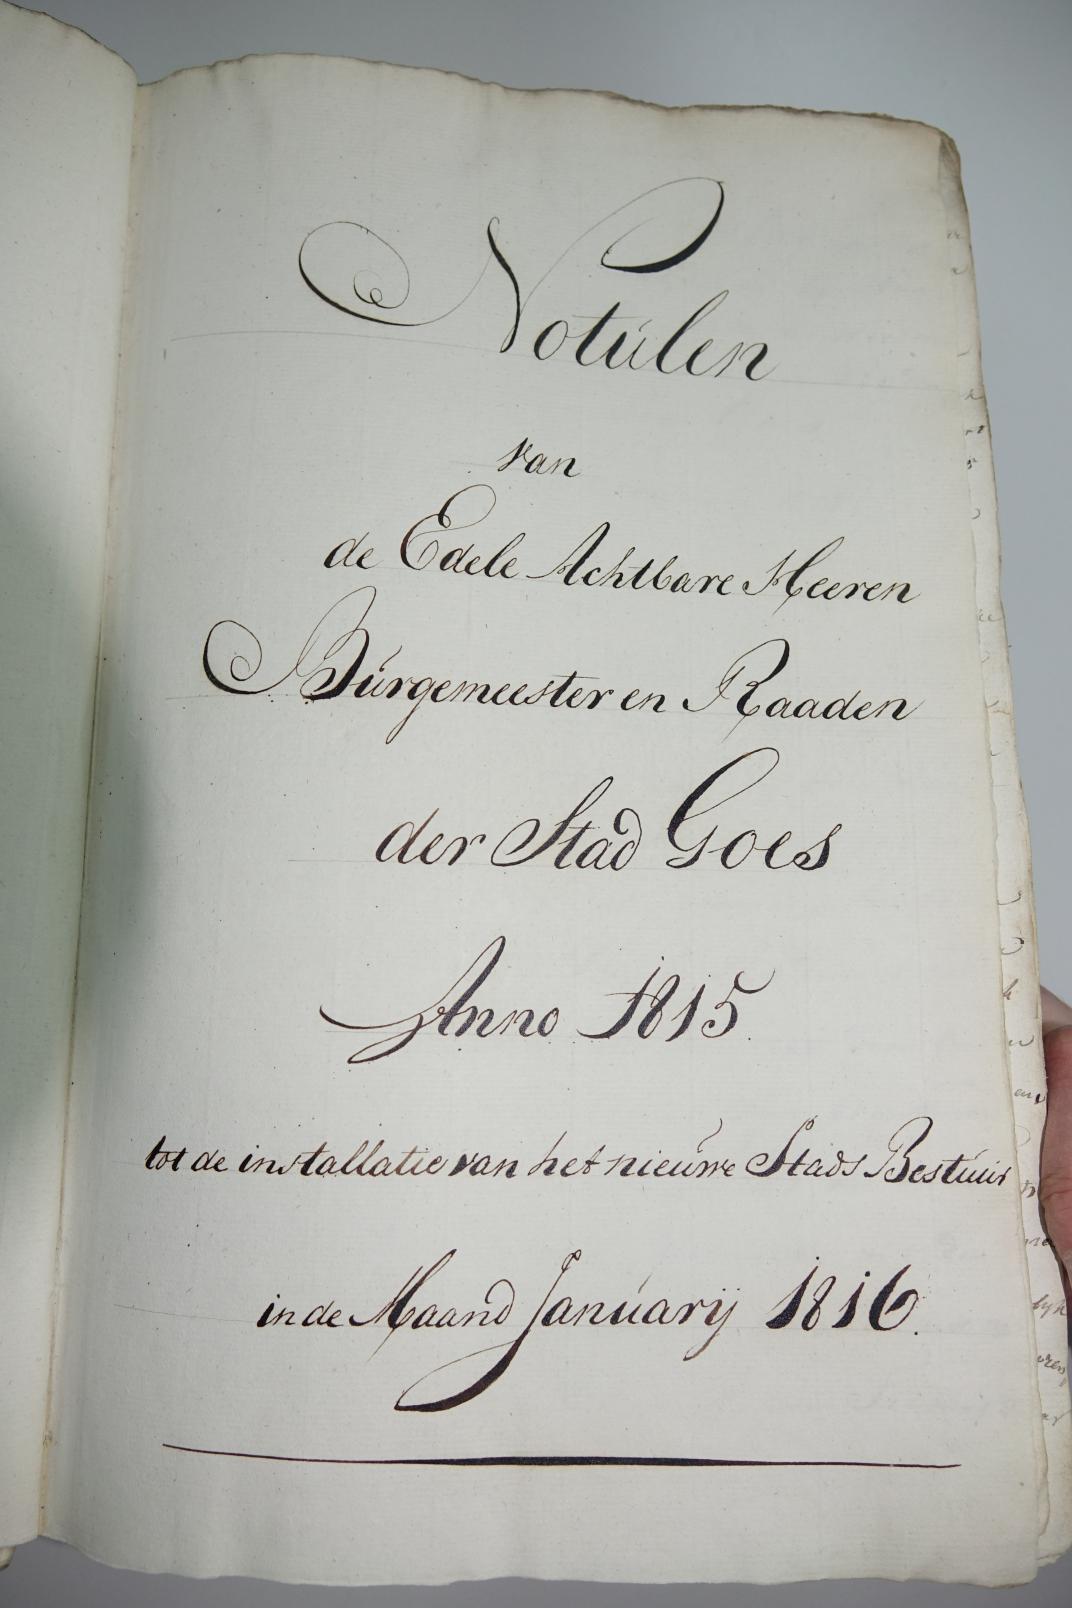 Notúlen
van
de Edele Achtbare Heeren
Búrgemeester en Raaden
der Stad Goes
Anno 1815.
tot de installatie van het nieúwe Stads Bestúúr
in de Maand Janúarij 1816.